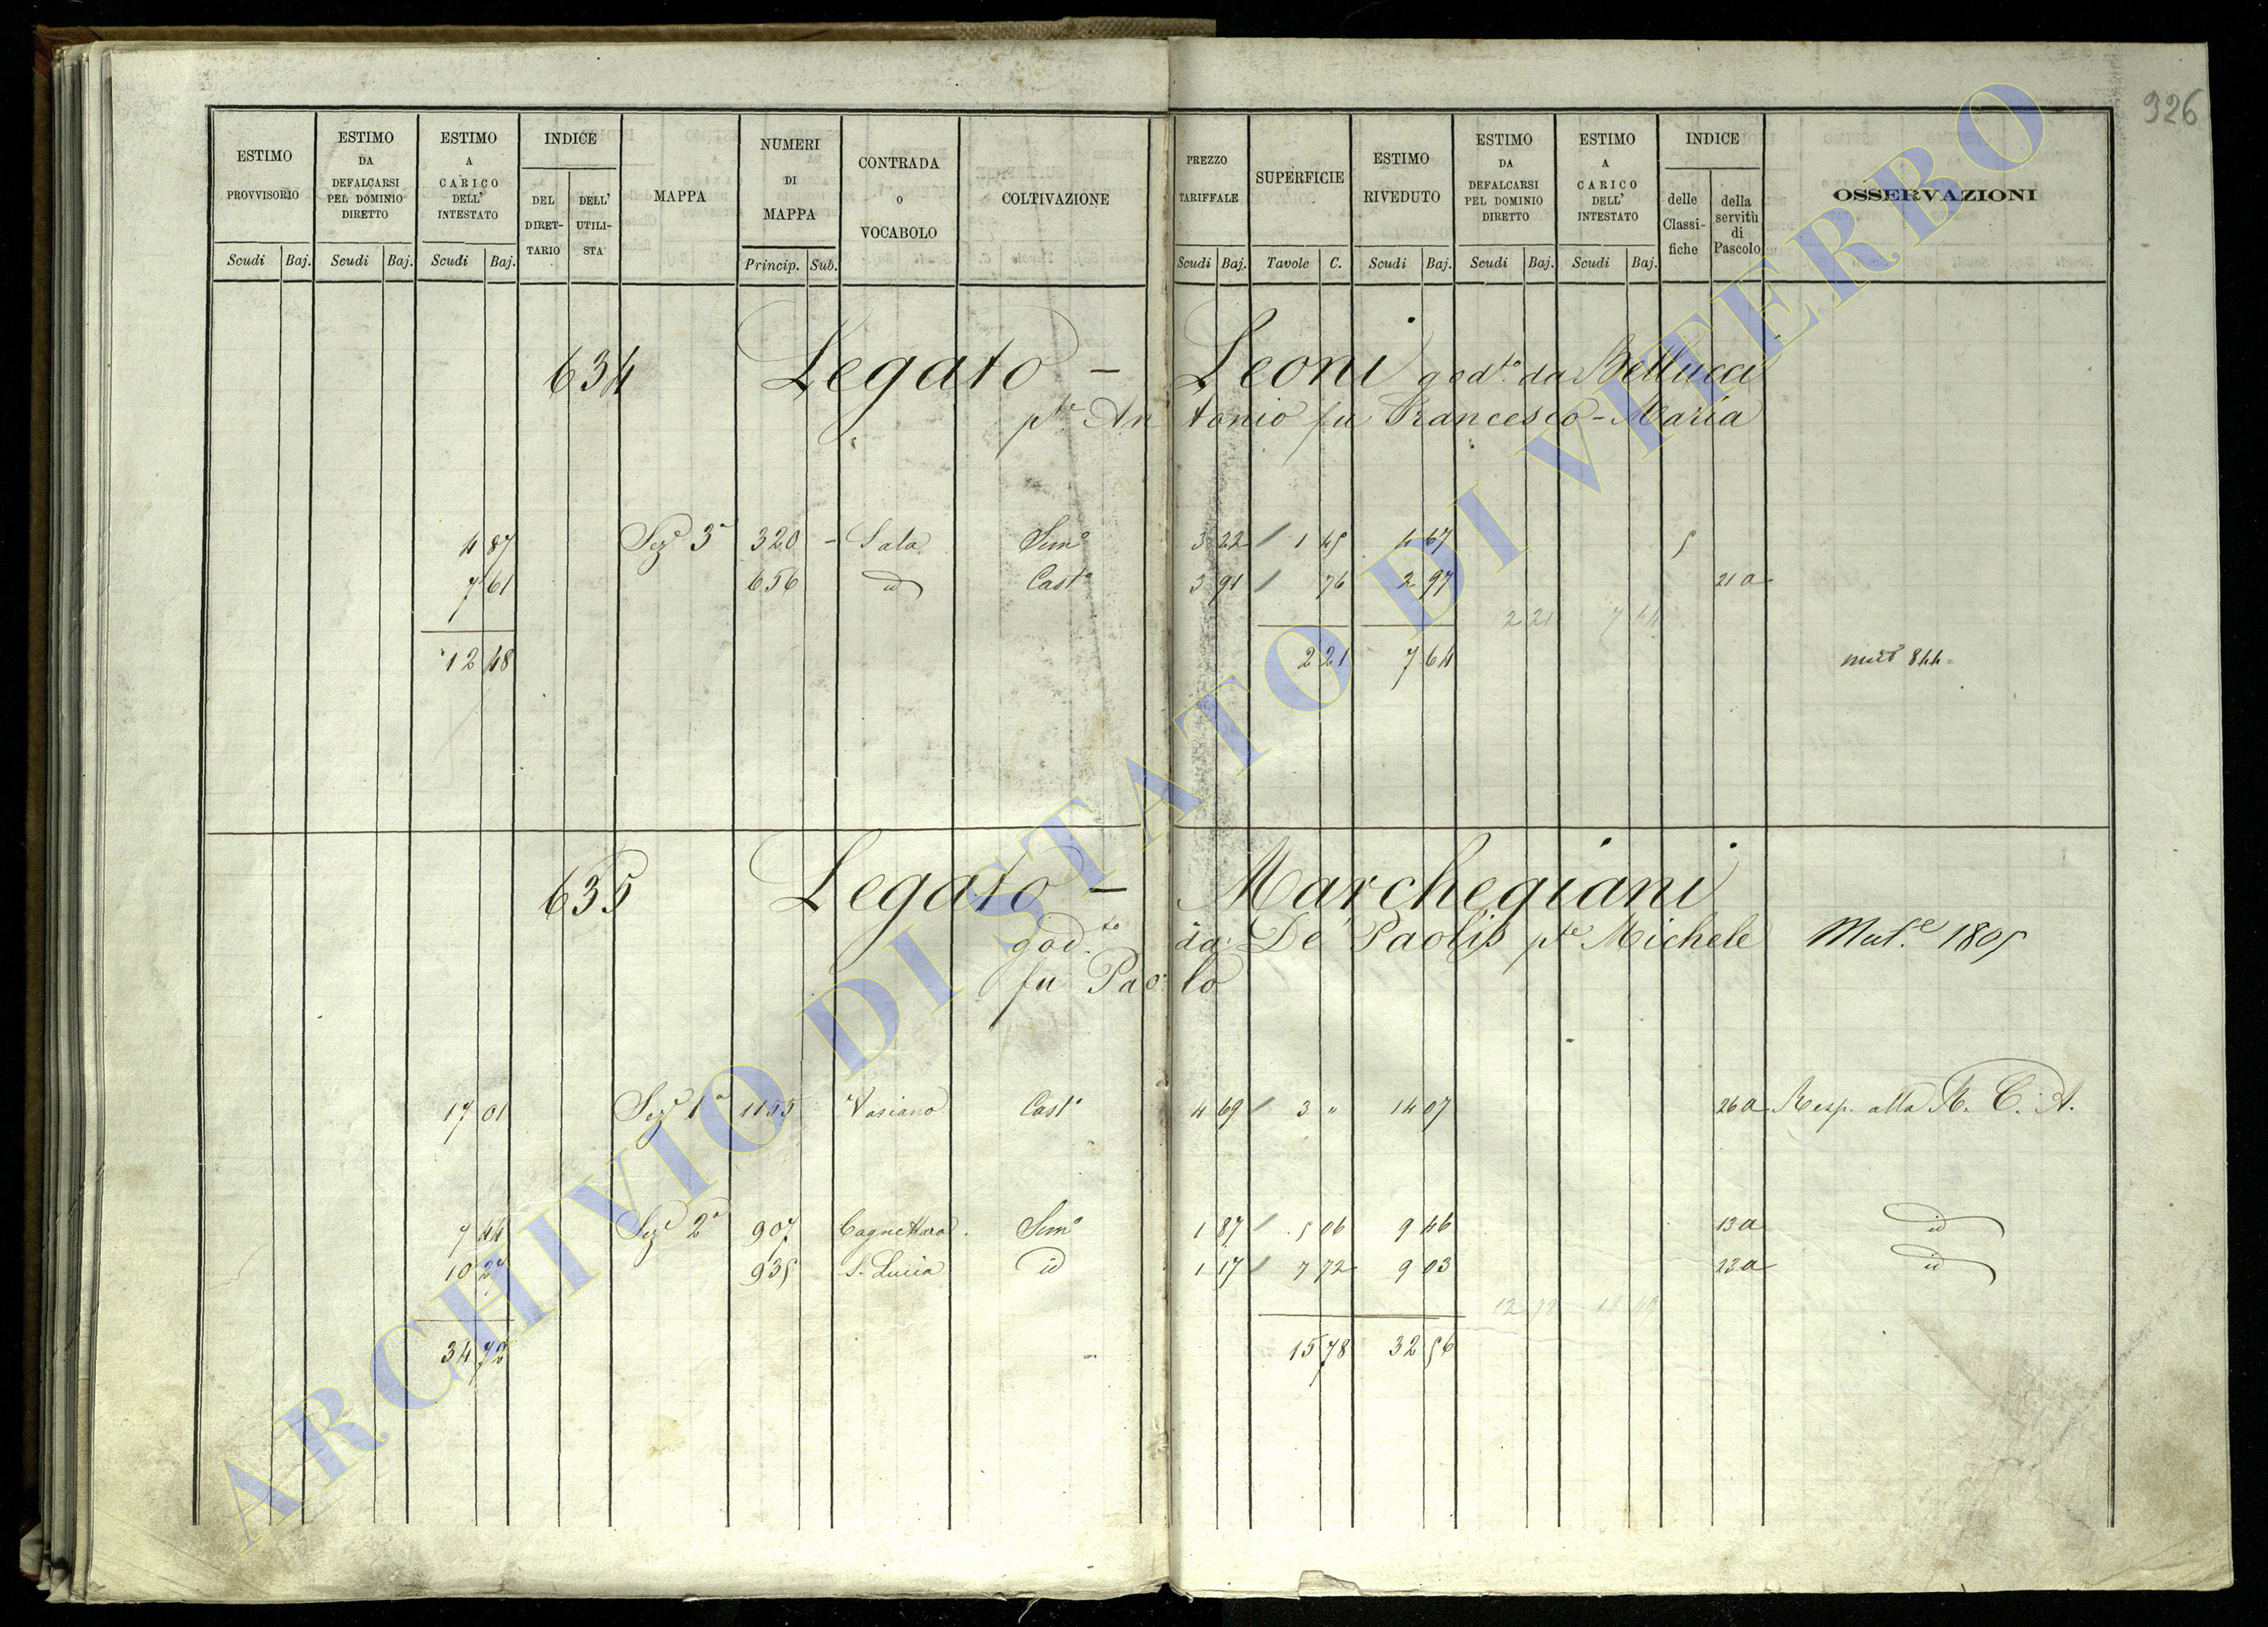 326
ESTIMO PROVVISORIO Scudi Baj.
ESTIMO DA DEFALCARSI PEL DOMINIO DIRETTO Scudi Baj.
ESTIMO A CARICO DELL' INTESTATO Scudi Baj.
INDICE DEL DIRET-TARIO DELL' UTILI-STA
MAPPA
NUMERI DI MAPPA Princip. Sub.
CONTRADA o VOCABOLO
COLTIVAZIONE
PREZZO TARIFFALE Scudi Baj.
SUPERFICIE Tavole C.
ESTIMO RIVEDUTO Scudi Baj.
ESTIMO DA DEFALCARSI PEL DOMINIO DIRETTO Scudi Baj.
ESTIMO A CARICO DELL' INTESTATO Scudi Baj.
INDICE delle Classi-fiche della servitù di Pascolo
OSSERVAZIONI
634 Legato - Leoni god.to da Bellucci
p.te Antonio fu Francesco-Maria
4 87 Sez.e 3a 320 - Sala Sem.o 3 22 1 45 4 67 5
7 61 656 id Cast.o 3 91 76 2 97 21a
2 21 7 64
12 48 2 21 7 64 844
635 Legato - Marchegiani
god.to da De Paolis p.te Michele Mut.e 1805
fu Paolo
17 01 Sez.e 1a 1155 Vasiano Cast.o 4 69 3 " 14 07 26a Resp. alla R. C. A.
7 44 Sez.e 2a 907 Cagnettara Sem.o 1 87 5 06 9 46 13a id
10 27 935 S. Lucia id 1 17 7 72 9 03 23a id
34 72 15 78 32 56
ARCHIVIO DI STATO DI VITERBO